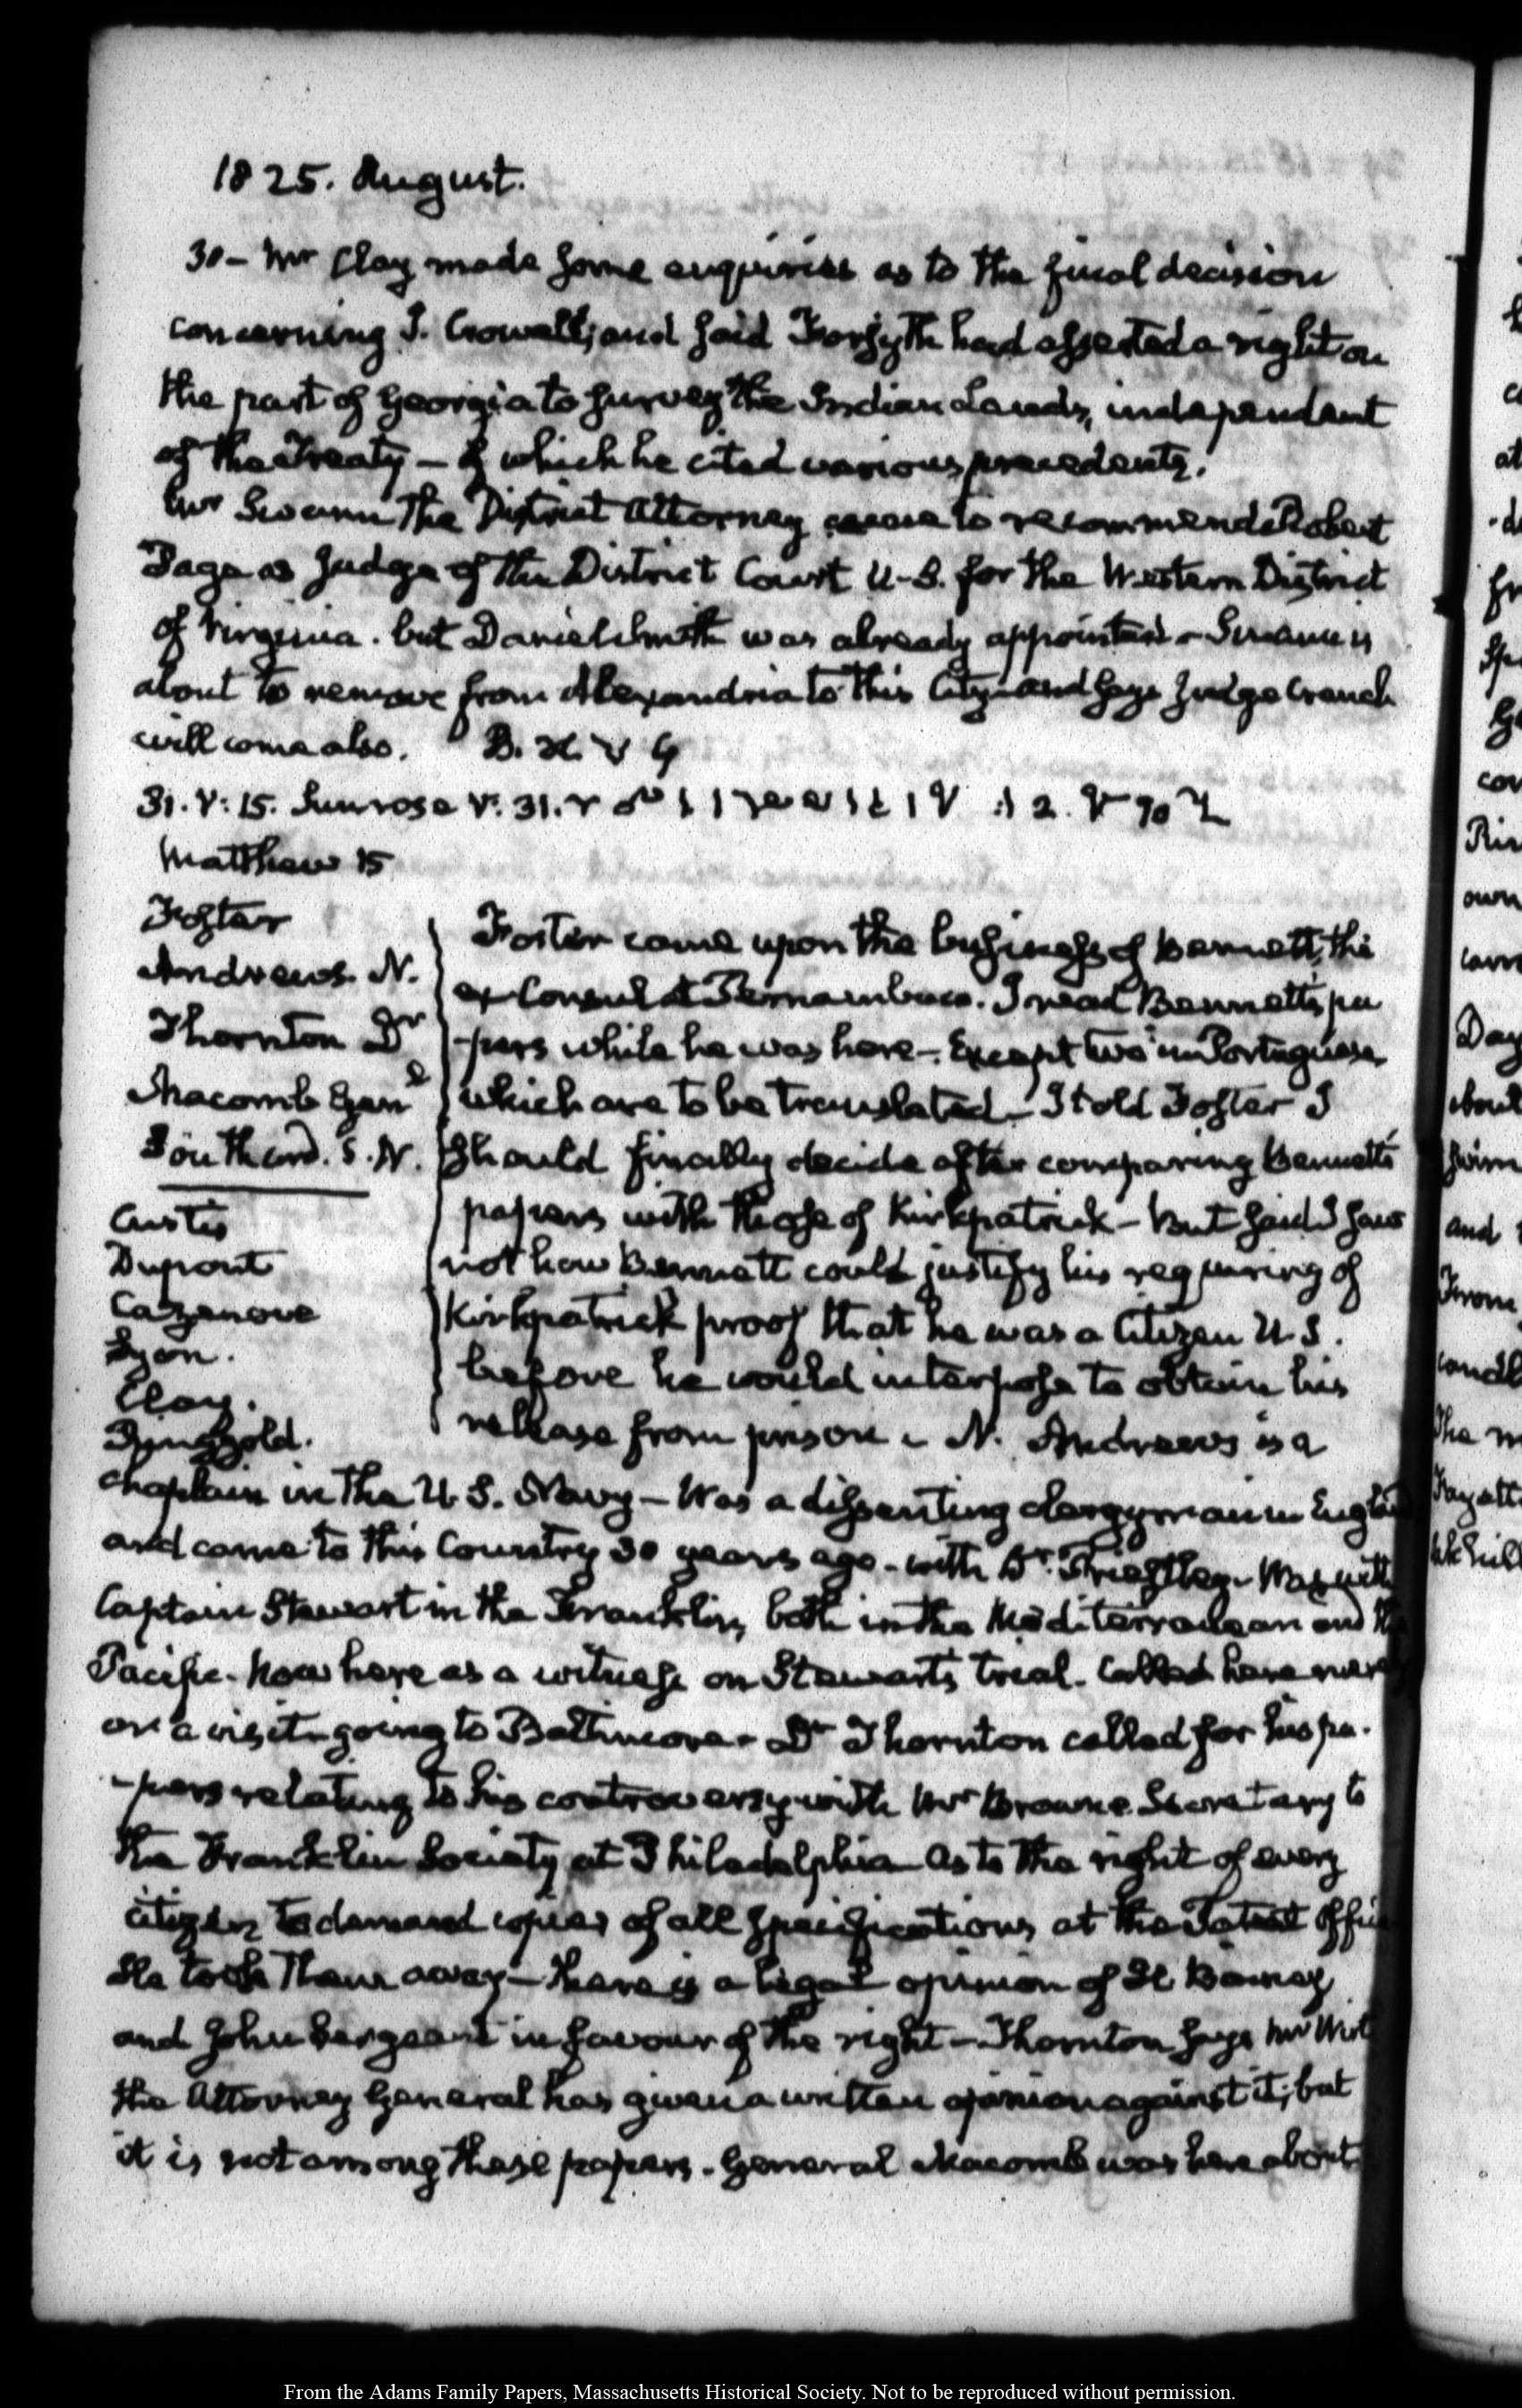 1825. August.
30 - Mr Clay made some enquiries as to the final decision
concerning J. Crowell; and said Forsyth had asserted a right on
the part of Georgia to survey the Indian Lands, independent
of the Treaty - of which he cited various precedents.
Mr Swann the District Attorney came to recommend Robert
Page as Judge of the District Court U.S. for the Western District
of Virginia. but Daniel Smith was already appointed - Swann is
about to remove from Alexandria to this City and says Judge Cranch
will come also.
31. V: 15. Sun rose V: 31.
Matthew 15
Foster
Andrews N.
Thornton Dr
Macomb Genl
Southard. S. N.
Custis
Dupont
Cazenove
Lyon.
Clay.
Ringgold.
Foster came upon the business of Bennett, the
ex Consul at Pernambuco. I read Bennett's pa
-pers while he was here - Except two in Portuguese
which are to be translated - I told Foster I
should finally decide after comparing Bennett's
papers with those of Kirkpatrick - But said I saw
not how Bennett could justify his requiring of
Kirkpatrick proof that he was a Citizen U.S.
before he would interpose to obtain his
release from prison - N. Andrews is a
Chaplain in the U.S. Navy - Was a dissenting clergyman in England
and came to this Country 30 years ago - with Dr. Priestley - Was with
Captain Stewart in the Franklin, both in the Mediterranean and the
Pacific - Now here as a witness on Stewart's trial - Called here merely
on a visit - going to Baltimore - Dr Thornton called for his pa-
-pers relating to his controversy with Mr Browne Secretary to
the Franklin Society at Philadelphia as to the right of every
citizen to demand copies of all specifications at the Patent Office
He took them away - There is a legal opinion of H Binney
and John Sergeant in favour of the right - Thornton says Mr Wirt
the Attorney General has given a written opinion against it; but
it is not among these papers. General Macomb was here about
From the Adams Family Papers, Massachusetts Historical Society. Not to be reproduced without permission.